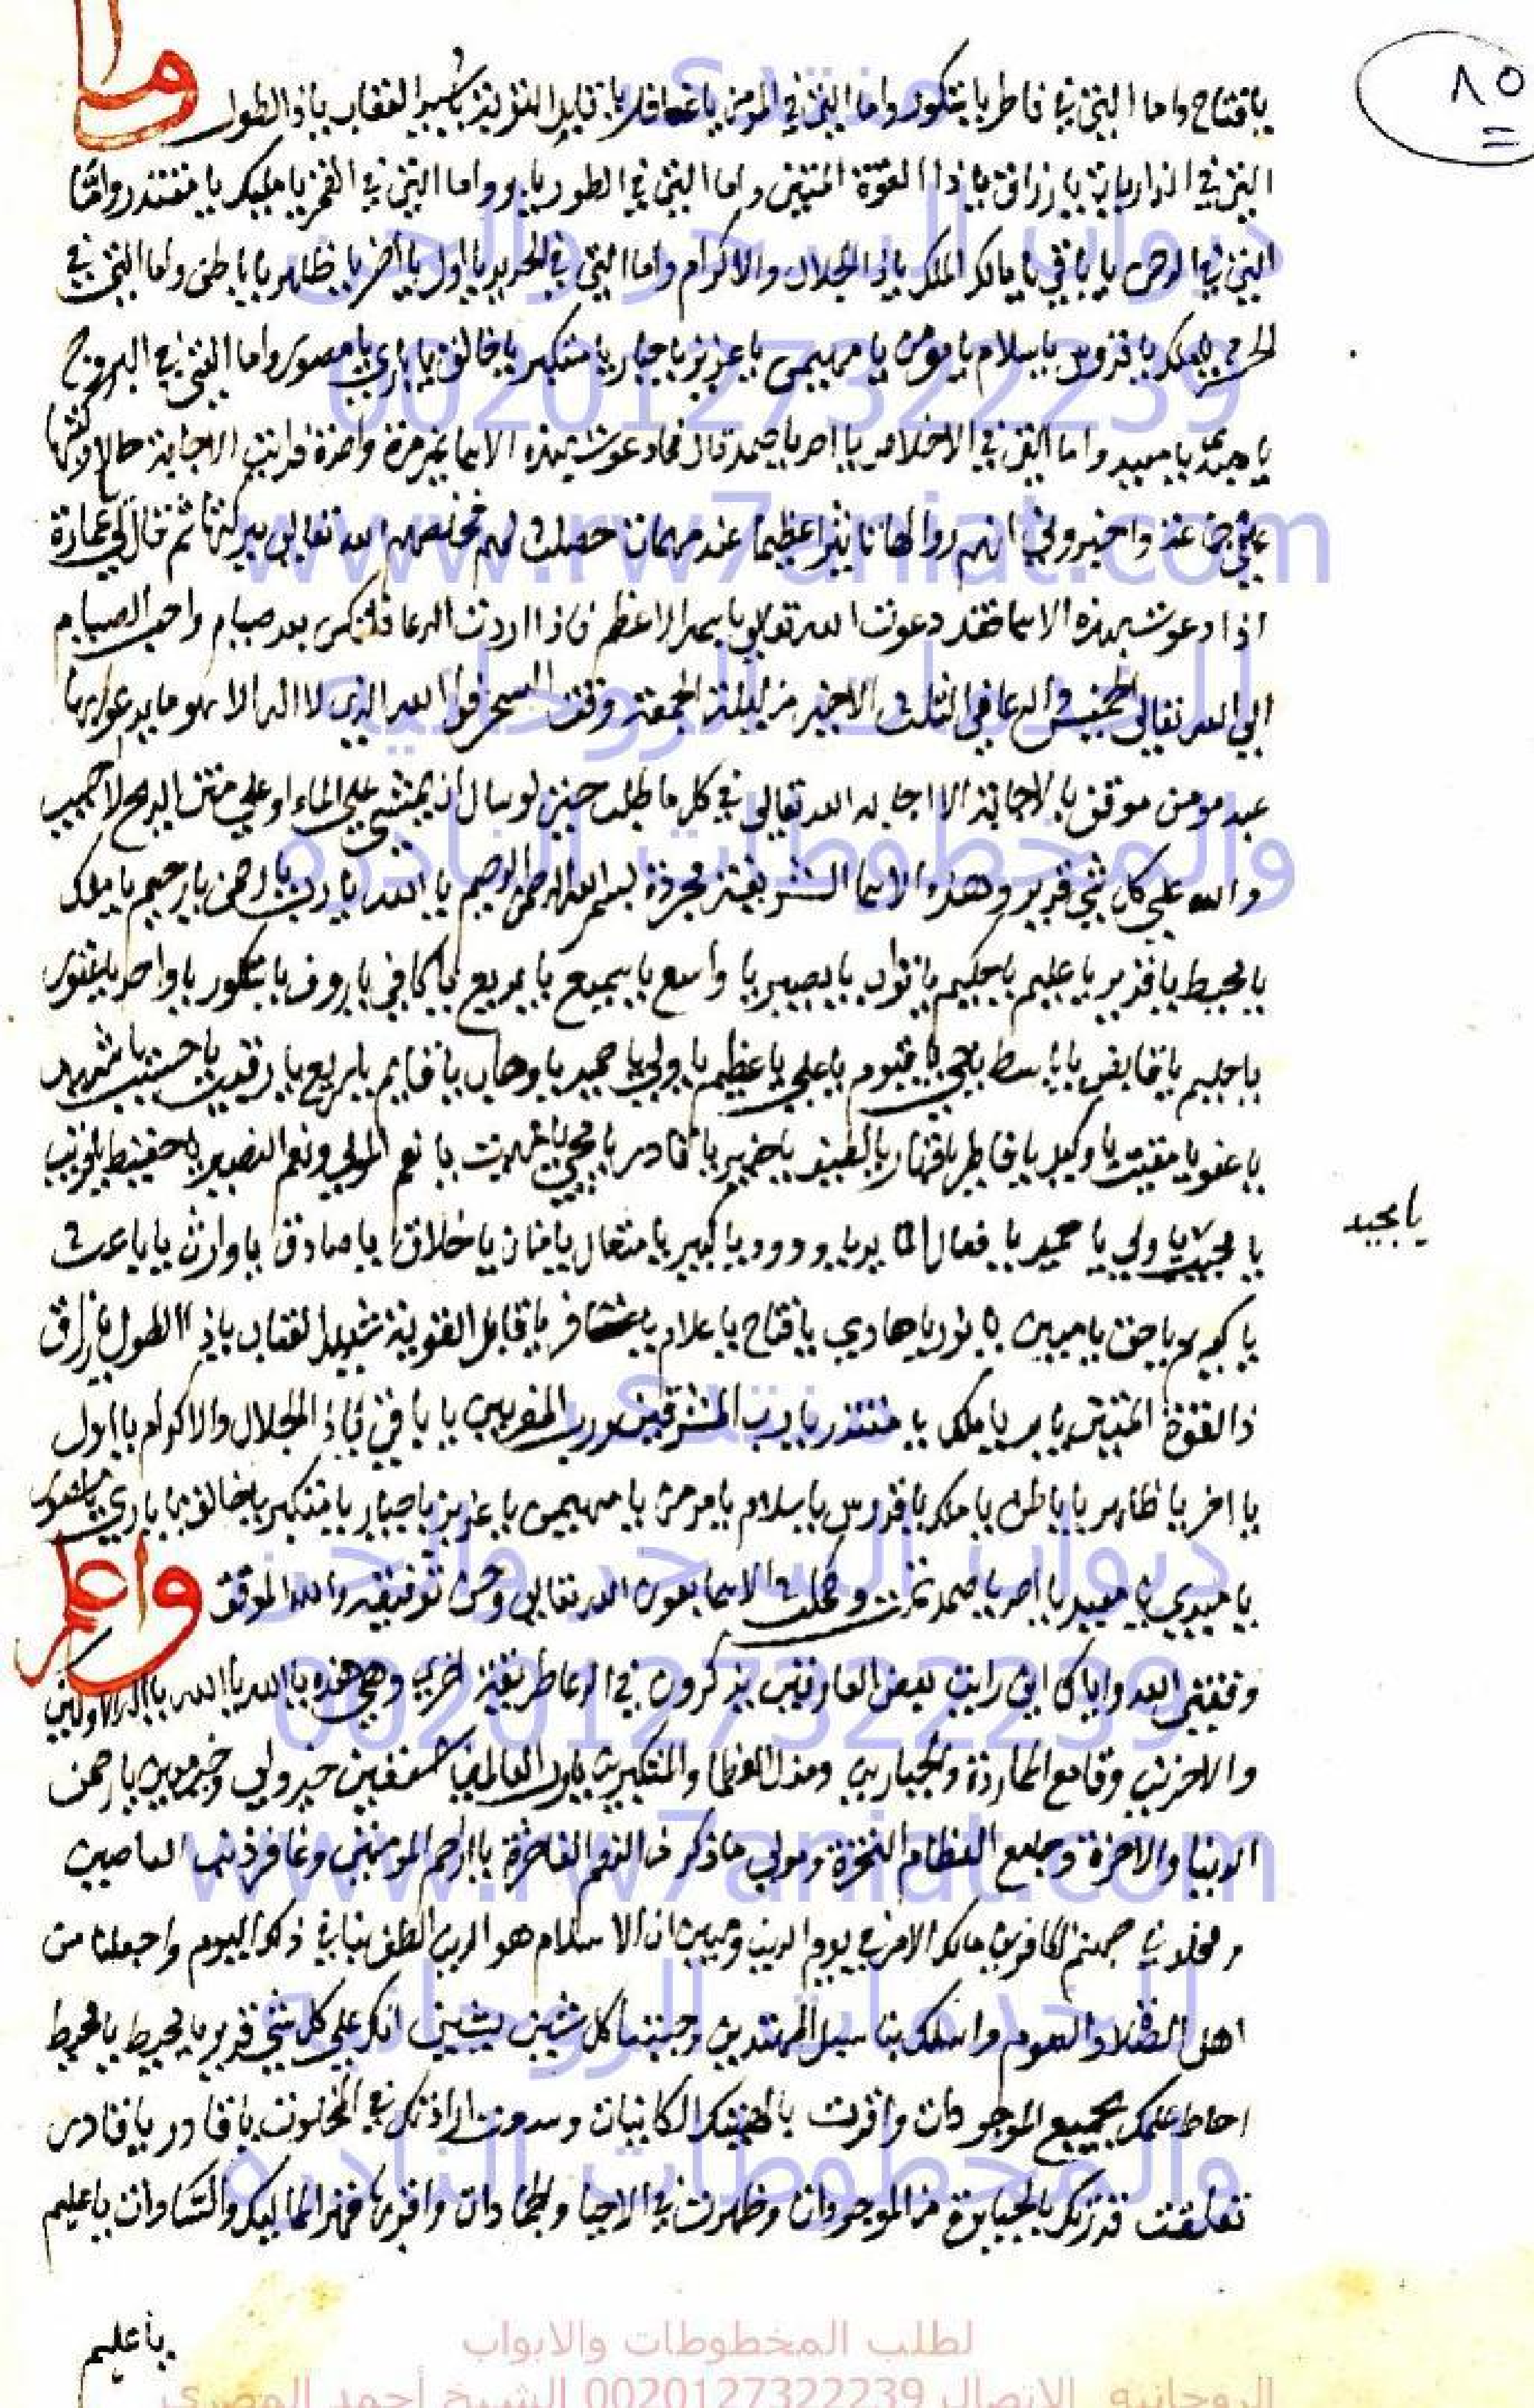 ٨٥
يا فتاح واما التي في فاطر يا شكور واما التي في المومن يا غافر يا قابل التوبة يا شديد العقاب يا ذا الطول واما
التي في الذاريات يا رزاق يا ذا القوة المتين واما التي في الطور يا بر واما التي في القمر يا مليك يا مقتدر واما
التي في الرحمن يا باقي يا مالك الملك يا ذا الجلال والاكرام واما التي في الحديد يا اول يا اخر يا ظاهر يا باطن واما التي في
الحشر يا ملك يا قدوس يا سلام يا مومن يا مهيمن يا عزيز يا جبار يا متكبر يا خالق يا باري يا مصور واما التي في البروج
يا مبدي يا معيد واما التي في الاخلاص يا احد يا صمد قال فما دعوت بهذه الاسما غير مرة واحدة فرايت الاجابة حالا
جماعة واخبروني انهم راوا لها تاثيرا عظيما عند مهمات حصلت لهم فخلصهم الله تعالى ببركتها ثم قال لي عمارة
اذا دعوت بهذه الاسما فقد دعوت الله تعالى باسمه الاعظم فاذا اردت الدعا فليكن بعد صيام واحب الصيام
الي الله تعالى الخميس والدعا في الثلث الاخير من ليلة الجمعة وقت السحر فوالله الذي لا اله الا هو ما يدعو بها
عبد مومن موقن بالاجابة الا اجابه الله تعالى في كل ما طلب حتى لو سال ان يمشي على الماء او على متن الريح لاجيب
والله على كل شي قدير وهذه الاسما الشريفة مجردة بسم الله الرحمن الرحيم يا الله يا رب يا رحمن يا رحيم يا ملك
يا محيط يا قدير يا عليم يا حكيم يا تواب يا بصير يا واسع يا سميع يا بديع يا كافي يا روف يا شكور يا واحد يا غفور
يا حليم يا قابض يا باسط يا حي يا قيوم يا علي يا عظيم يا ولي يا حميد يا وهاب يا قايم يا سريع يا رقيب يا حسيب يا شهيد
يا عفو يا مقيت يا وكيل يا فاطر يا قهار يا لطيف يا خبير يا قادر يا محي يا مميت يا نعم المولى ونعم النصير يا حفيظ يا قريب
يا مجيب يا ولي يا حميد يا فعال لما يريد يا ودود يا كبير يا متعال يا منان يا خلاق يا صادق يا وارث يا باعث
يا مجيد
يا كريم يا حق يا مبين يا نور يا هادي يا فتاح يا علام يا غافر يا قابل التوبة شديد العقاب يا ذا الطول يا رزاق
ذا القوة المتين يا بر يا ملك يا مقتدر يا رب المشرقين ورب المغربين يا باقي يا ذا الجلال والاكرام يا اول
يا اخر يا ظاهر يا باطن يا ملك يا قدوس يا سلام يا مومن يا مهيمن يا عزيز يا جبار يا متكبر يا خالق يا باري يا مصور
يا مبدي يا معيد يا احد يا صمد تمت وكملت الاسما بعون الله تعالى وحسن توفيقه والله الموفق واعلم
وفقني الله واياك اني رايت بعض العارفين يذكرون في الدعا طريقة اخرى وهي هذه يا الله يا الله يا اله الاولين
والاخرين وقامع الماردة والجبارين ومذل العظما والمتكبرين يا رب العالمين خير ولي وخير معين يا رحمن
الدنيا والاخرة وجامع العظام النخرة يا ارحم المومنين وغافر ذنب العاصين
جهنم الكافرين مالك الامر في يوم الدين ومبين ان الاسلام هو الدين الطف بنا في ذلك اليوم واجعلنا من
اهل واسلك بنا سبيل المهتدين وجنبنا كل شين يشين انك على كل شي قدير يا محيط يا محيط
احاط علمك بجميع الموجودات واقرت الكاينات ارادتك في المخلوقات يا قادر يا قادر
تعلقت قدرتك من الموجودات وظهرت في الاحيا والجمادات يا عليم
يا عليم
منتدى
ديوان السحر والجن
00201273222​39
www.rw7aniat.com
للخدمات الروحانيه
والمخطوطات النادره
منتدى
ديوان السحر والجن
00201273222​39
www.rw7aniat.com
للخدمات الروحانيه
والمخطوطات النادره
لطلب المخطوطات والابواب
الروحانيه الاتصال 00201273222​39 الشيخ أحمد المصري